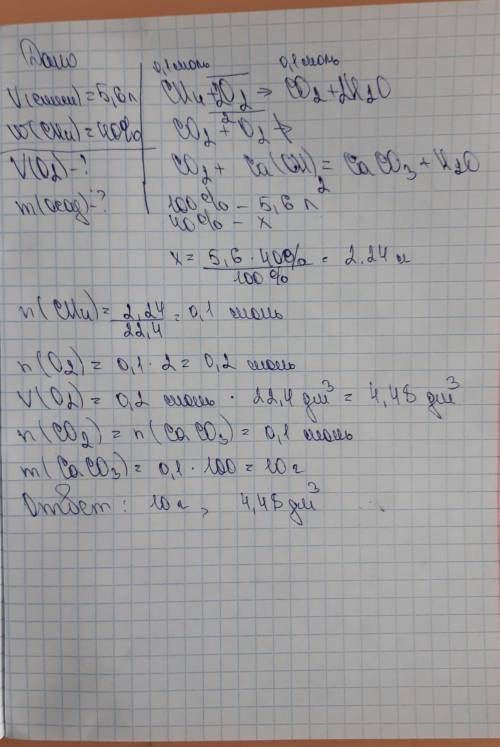 Дано
V(смеси)=5,6л
W(CH4)=40%
V(O2)-?
m(осад)-?
0,1 моль 0,1 моль
CH4+2O2 → CO2+2H2O
CO2 + O2 ↛
CO2 + Ca(OH)2 = CaCO3 + H2O
100% - 5,6 л
40% - x
x = 5,6 · 40% / 100% = 2,24 л
n(CH4) = 2,24 / 22,4 = 0,1 моль
n(O2) = 0,1 · 2 = 0,2 моль
V(O2) = 0,2 моль · 22,4 дм³ = 4,48 дм³
n(CO2) = n(CaCO3) = 0,1 моль
m(CaCO3) = 0,1 · 100 = 10 г
Ответ: 10 г, 4,48 дм³